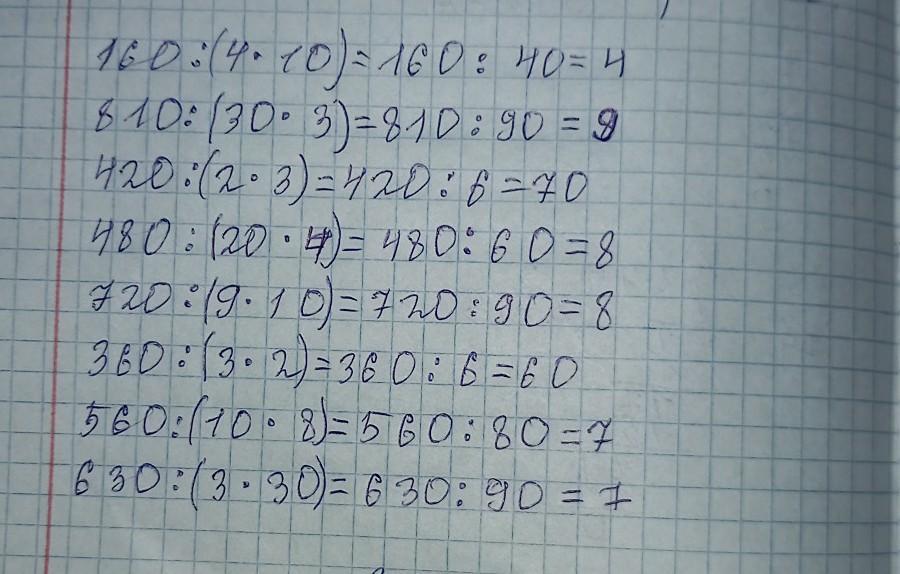 160:(4·10)=160:40=4
810:(30·3)=810:90=9
420:(2·3)=420:6=70
480:(20·4)=480:60=8
720:(9·10)=720:90=8
360:(3·2)=360:6=60
560:(10·8)=560:80=7
630:(3·30)=630:90=7